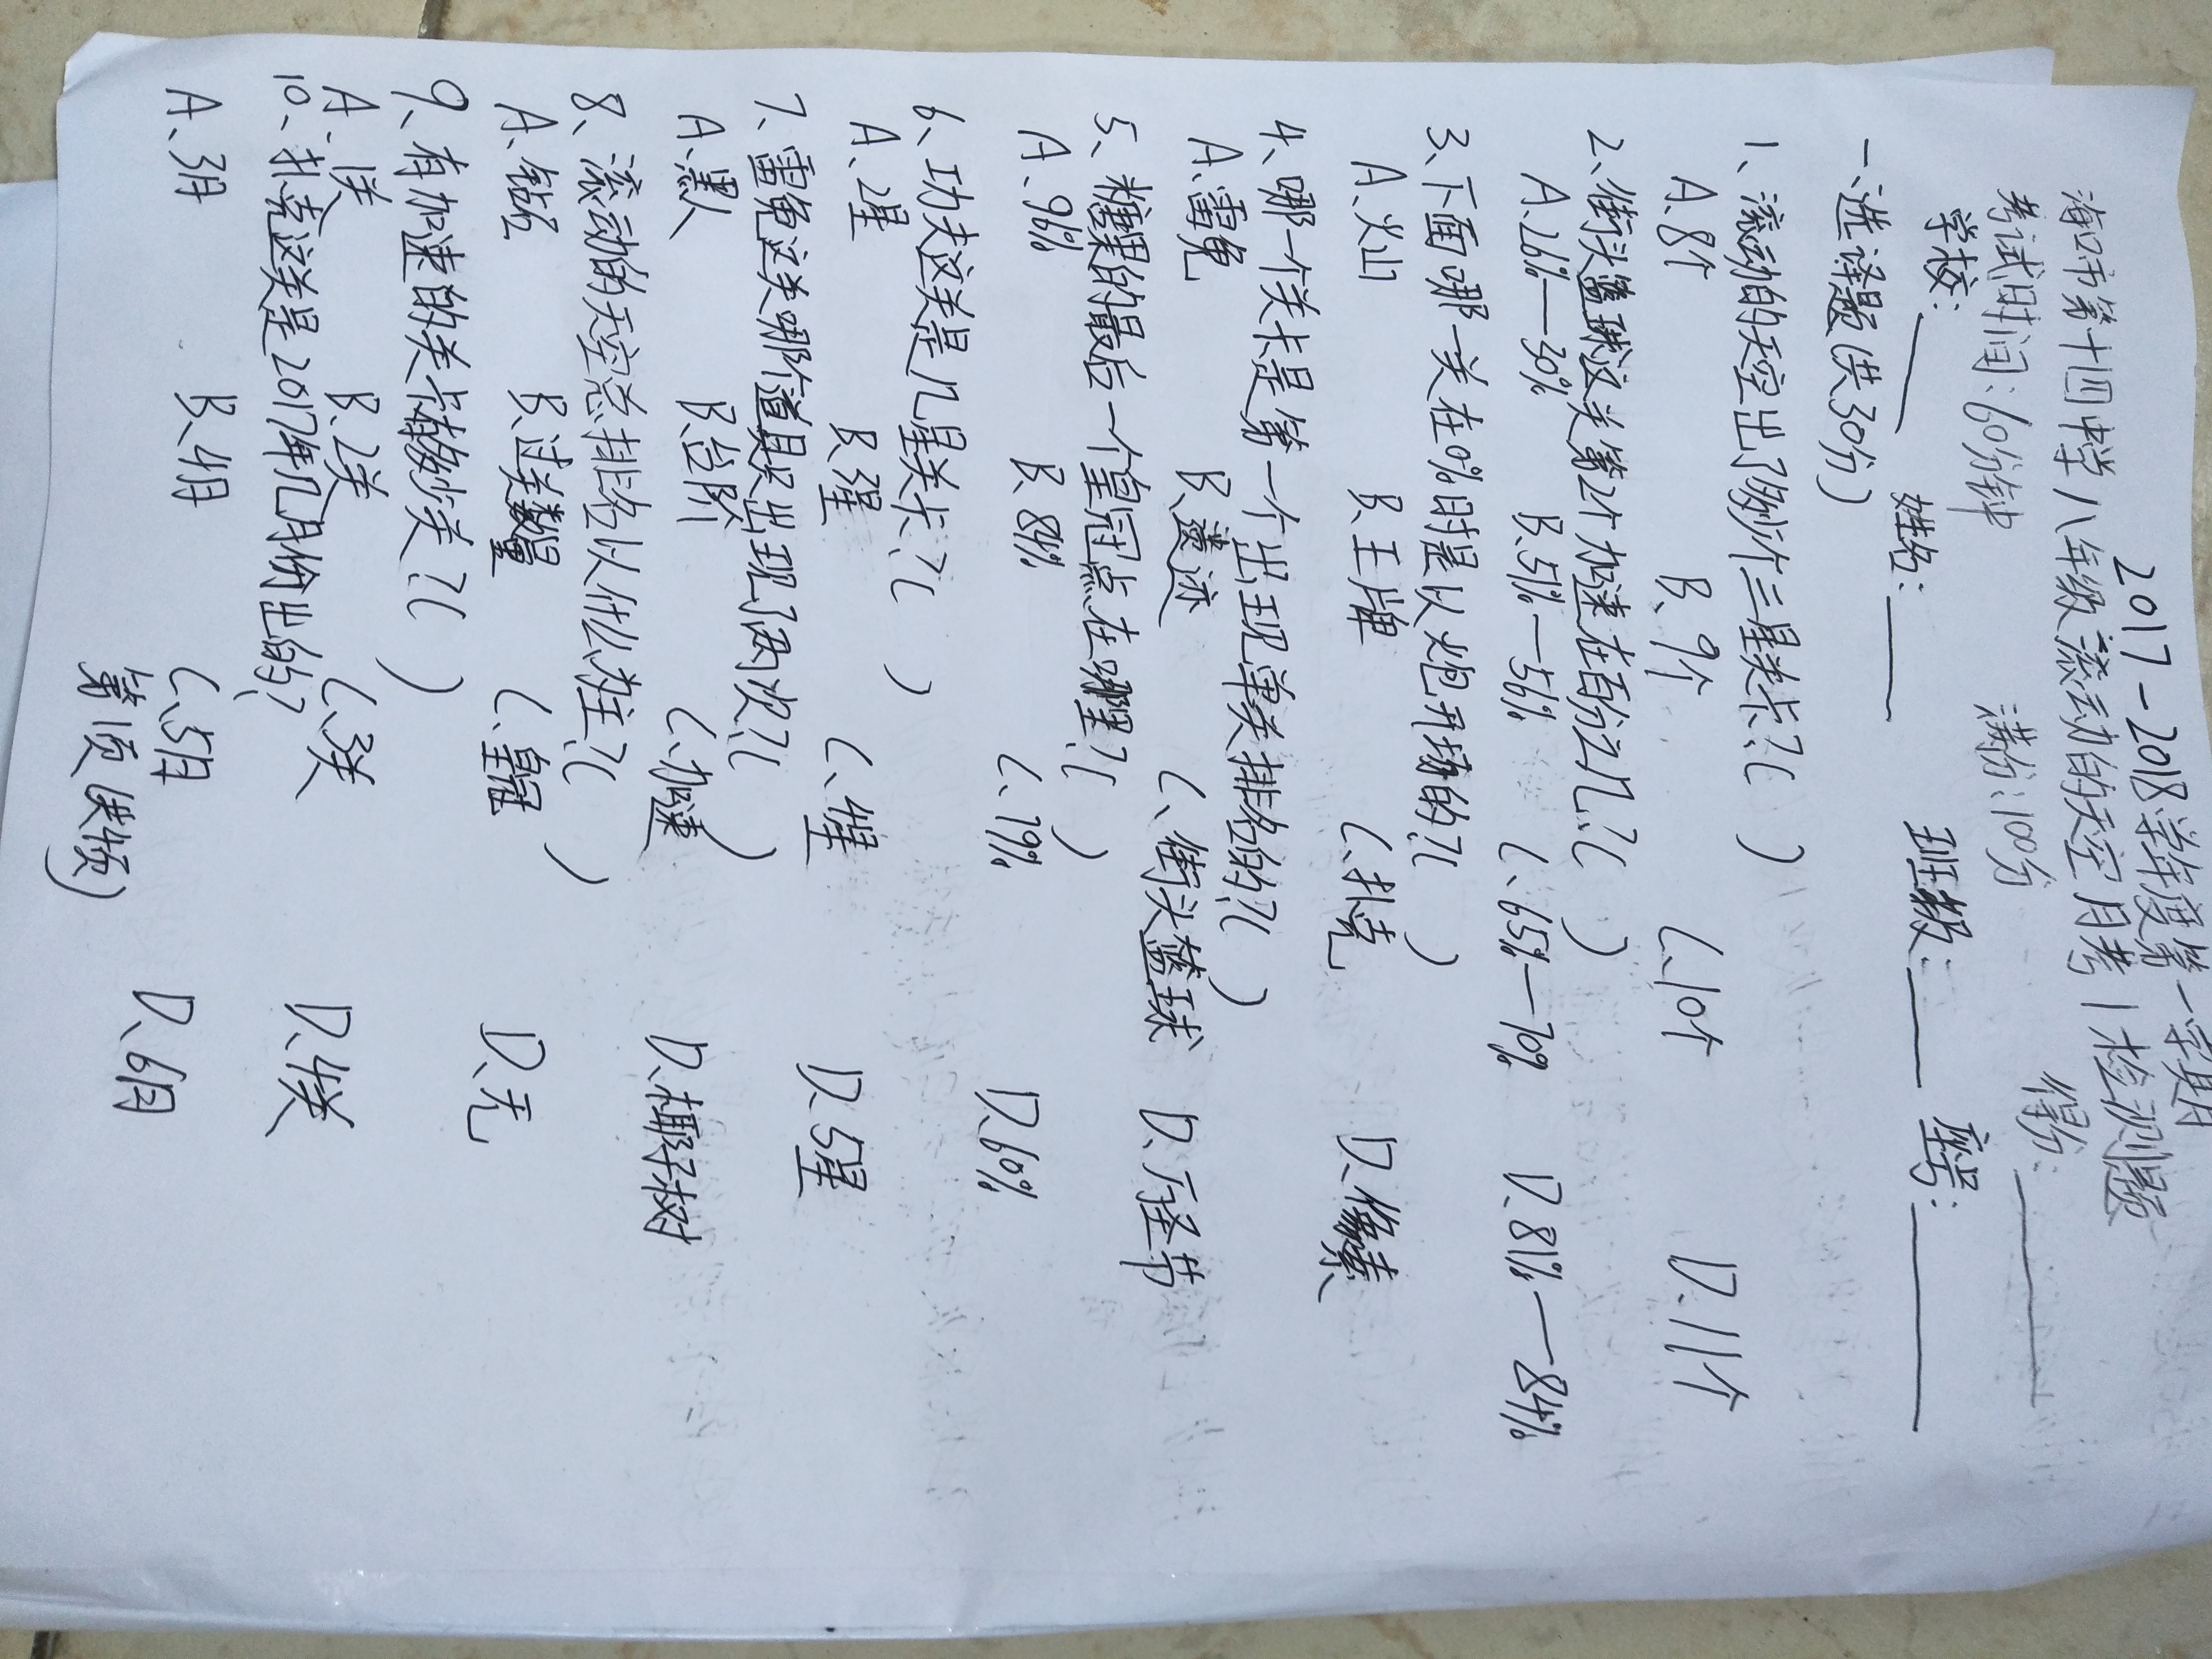 2017-2018学年度第一学期
海口市第十四中学八年级滚动的天空月考1检测题
考试时间:60分钟 满分:100分 得分:
学校: 姓名: 班级: 座号:
一、选择题(共30分)
1、滚动的天空出了多少个三星关卡?( )
A、8个 B、9个 C、10个 D、11个
2、街头篮球这关第2个加速在百分之几?( )
A、26%—30% B、51%—56% C、65%—70% D、81%—84%
3、下面哪一关在0%时是以炮开场的?( )
A、火山 B、王牌 C、扑克 D、像素
4、哪一个关卡是第一个出现单关排名的?( )
A、雷兔 B、遗迹 C、街头篮球 D、广圣节
5、糖果的最后一个皇冠点在哪里?( )
A、96% B、89% C、79% D、60%
6、功夫这关是几星关卡?( )
A、2星 B、3星 C、4星 D、5星
7、雷兔这关哪个道具只出现了两次?( )
A、黑人 B、台阶 C、加速 D、椰子树
8、滚动的天空总排名以什么为主?( )
A、钻石 B、过关数量 C、皇冠 D、无
9、有加速的关卡有多少关?( )
A、1关 B、2关 C、3关 D、4关
10、扑克这关是2017年几月份出的?
A、3月 B、4月 C、5月 D、6月
第1页(共 页)